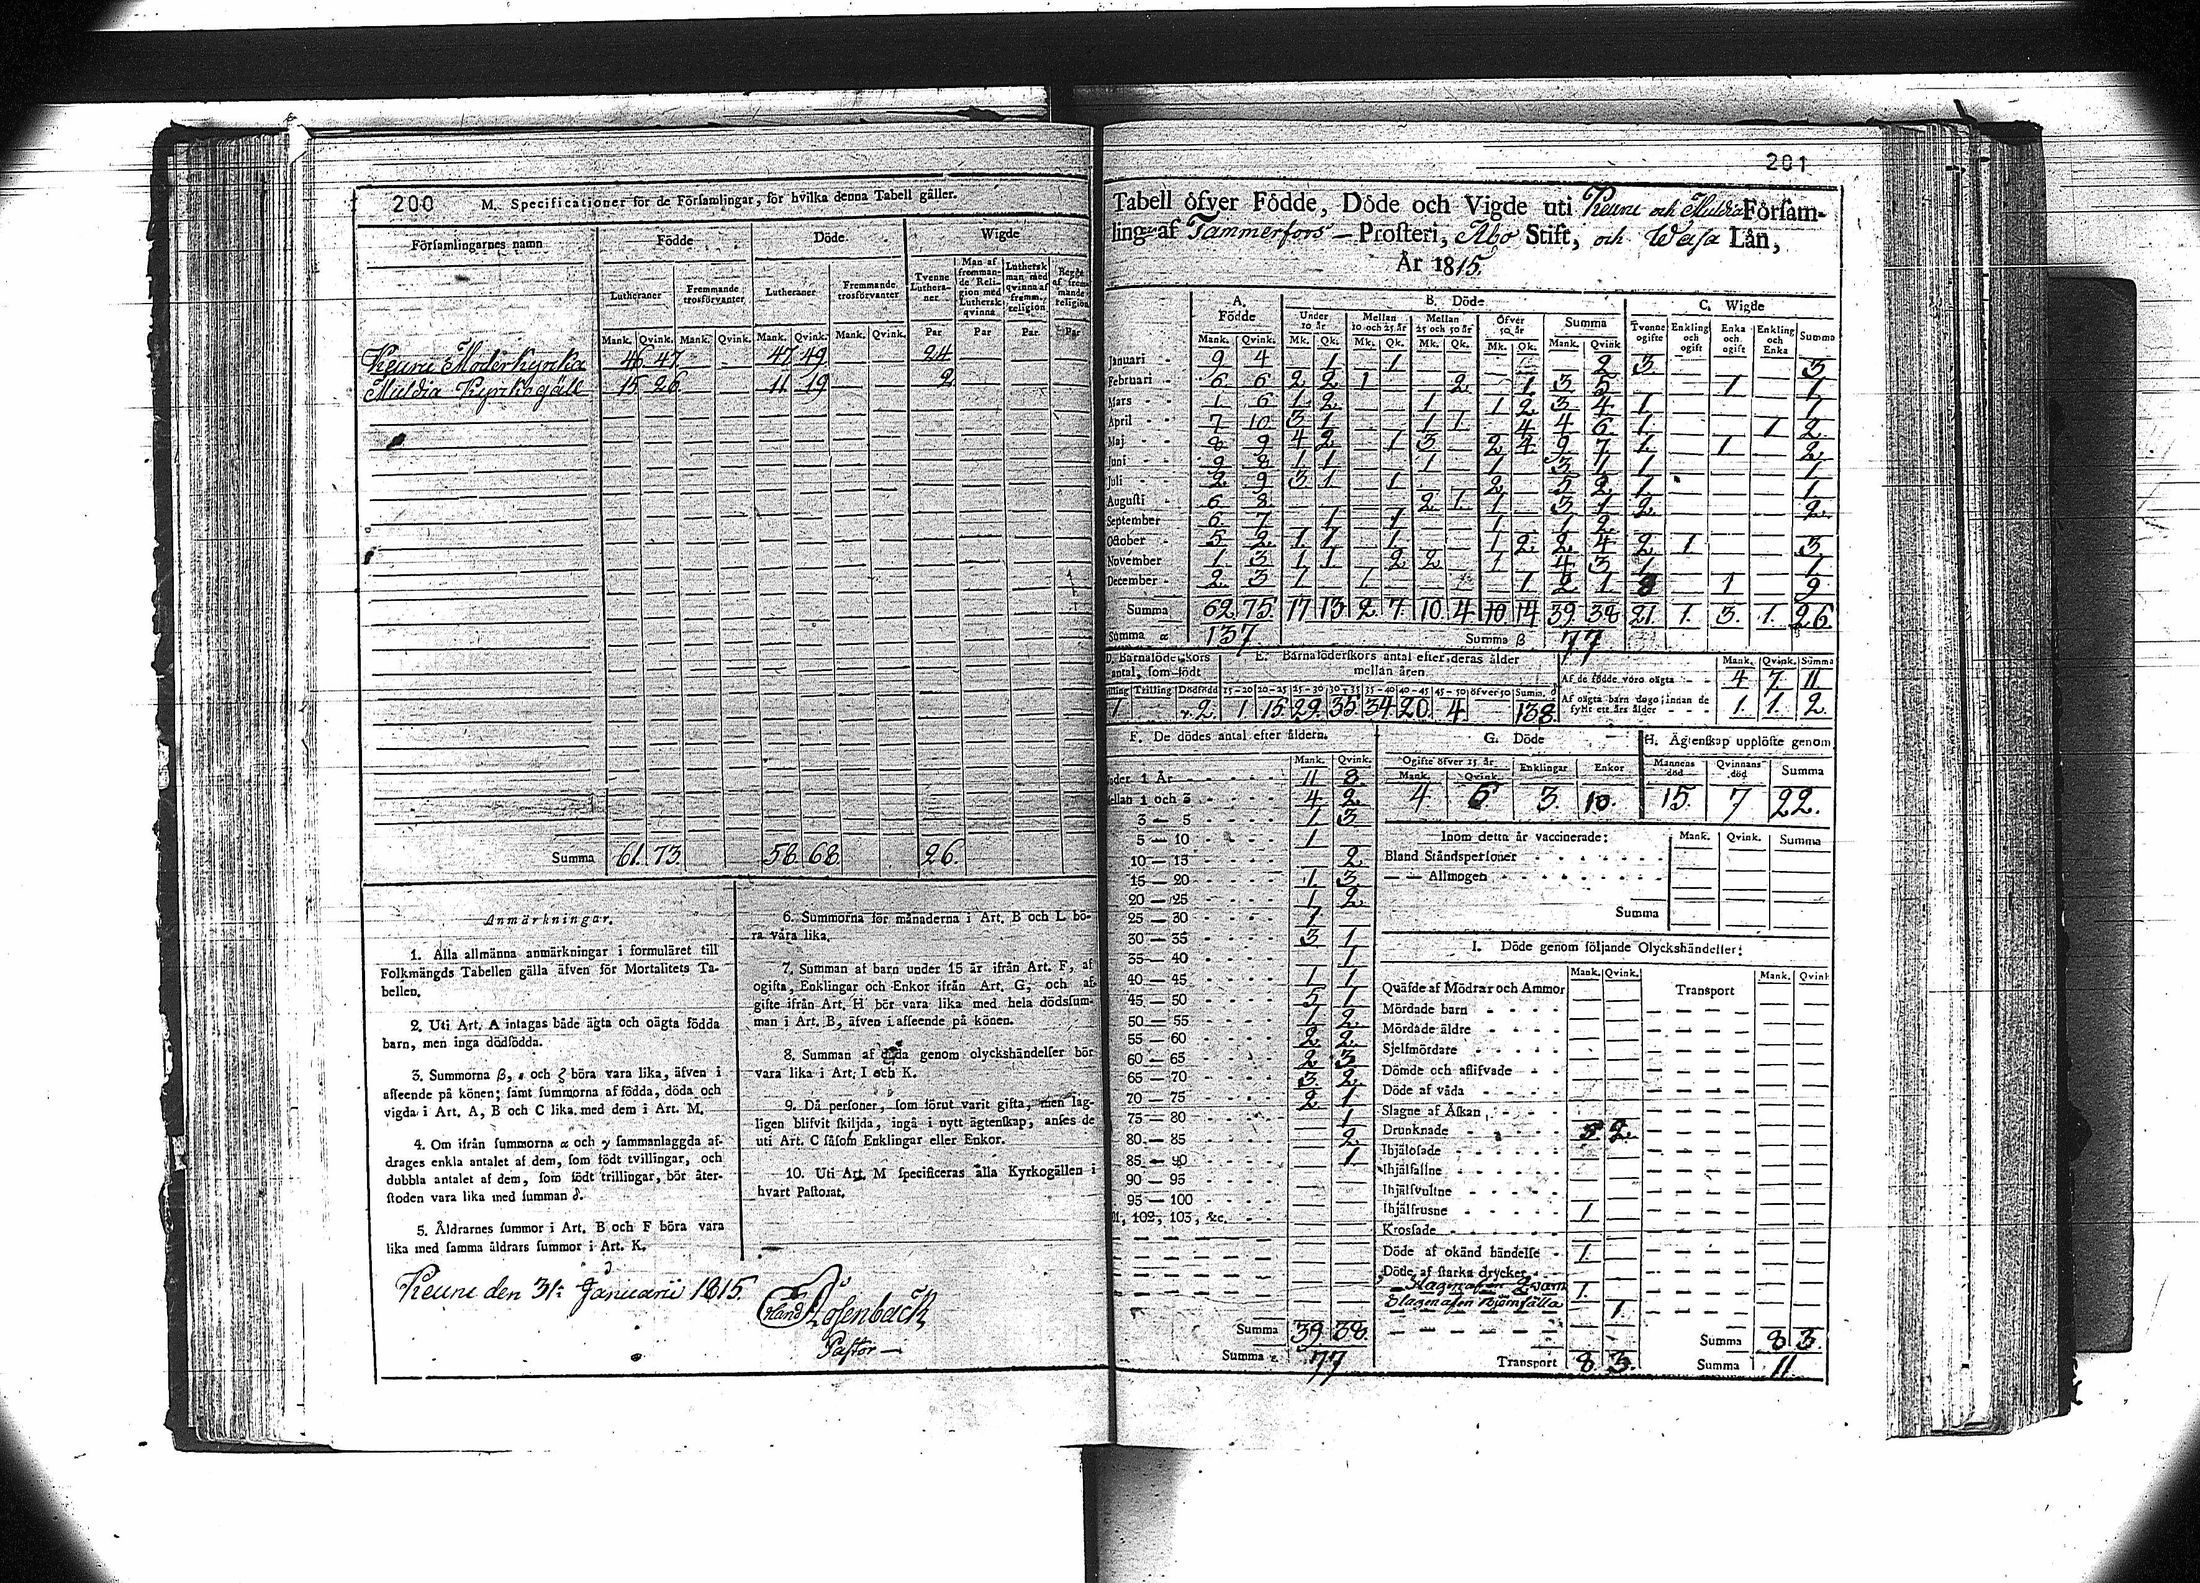 200 M. Specificationer för de Församlingar, för hvilka denna Tabell gäller.
Församlingarnes namn Födde Döde Wigde
Lutheraner Fremmande trosförvanter Lutheraner Fremmande trosförvanter Tvenne Lutheraner. Man af fremmande Religion med Luthersk qvinna Luthersk man med qvinna af fremm. religion Begge af fremmande religion
Mank. Qvink. Mank. Qvink. Mank. Qvink. Mank. Qvink. Par Par Par Par
Keuru Moderkyrka 46 47 47 49 24
Muldia Kyrkogäll 15 26 11 19 2
Summa 61. 73. 58 68 26.
Anmärkningar.
1. Alla allmänna anmärkningar i formuläret till
Folkmängds Tabellen gälla äfven för Mortalitets Ta-
bellen.
2. Uti Art. A intagas både ägta och oägta födda
barn, men inga dödfödda.
3. Summorna β, ε och ζ böra vara lika, äfven i
afseende på könen; samt summorna af födda, döda och
vigda i Art. A, B och C lika med dem i Art. M.
4. Om ifrån summorna α och γ sammanlaggda af-
drages enkla antalet af dem, som födt tvillingar, och
dubbla antalet af dem, som födt trillingar, bör åter-
stoden vara lika med summan δ.
5. Åldrarnes summor i Art. B och F böra vara
lika med samma åldrars summor i Art. K.
6. Summorna för månaderna i Art. B och L bö-
ra vara lika.
7. Summan af barn under 15 år ifrån Art. F, af
ogifta, Enklingar och Enkor ifrån Art. G, och af
gifte ifrån Art. H bör vara lika med hela dödsum-
man i Art. B, äfven i afseende på könen.
8. Summan af döda genom olyckshändelser bör
vara lika i Art. I och K.
9. Då personer, som förut varit gifta, men lag-
ligen blifvit skiljda, ingå i nytt ägtenskap, anses de
uti Art. C såsom Enklingar eller Enkor.
10. Uti Art. M specificeras alla Kyrkogällen i
hvart Pastorat.
Keuru den 31 Januarii 1815.
Rosenback
Pastor
201
Tabell öfver Födde, Döde och Vigde uti Keuru och Muldia Församling-
af Tammerfors Prosteri, Åbo Stift, och Wasa Län,
År 1815.
A. Födde B. Döde C. Wigde
Under 10 år Mellan 10 och 25 år Mellan 25 och 50 år Öfver 50 år Summa Tvenne ogifte Enkling och ogift Enka och ogift Enkling och Enka Summa
Mank. Qvink. Mk. Qk. Mk. Qk. Mk. Qk. Mk. Qk. Mank. Qvink
Januari 9 4 1 1 2 3 3
Februari 6 6 2 2 1 2 1 3 5 1 1
Mars 1 6 1 2 1 1 2 3 4 1 1
April 7 10 3 1 1 1 4 4 6 1 1 2
Maj 8 9 4 2 1 3 2 4 9 7 1 1 2
Juni 9 8 1 1 1 1 3 1 1 1
Juli 2 9 3 1 1 2 5 2 1 1
Augusti 6 8 2 1 1 3 1 2 2
September 6 7 1 1 1 1 2
October 5 2 1 1 1 1 2 2 4 2 1 3
November 1 3 1 1 2 2 1 4 3 1 1
December 2 3 1 1 1 2 1 8 1 9
Summa 62 75 17 13 2 7 10 4 10 14 39 38 21 1 3 1 26
Summa α 137 Summa β 77
D. Barnaföderskors antal, som födt
Trilling Dödfödd
1 2
E. Barnaföderskors antal efter deras ålder mellan åren
15-20 20-25 25-30 30-35 35-40 40-45 45-50 öfver 50 Summ. δ
1 15 29 35 34 20 4 138
Mank. Qvink. Summa
Af de födde voro oägta 4 7 11
Af oägta barn dogo, innan de fyllt ett års ålder 1 1 2
F. De dödes antal efter åldern.
Mank. Qvink.
Under 1 År 11 8
Mellan 1 och 3 4 2
3 — 5 1 3
5 — 10 1
10 — 15 2
15 — 20 1 3
20 — 25 1 2
25 — 30 1
30 — 35 3 1
35 — 40 1
40 — 45 1 1
45 — 50 5 1
50 — 55 1 2
55 — 60 2 2
60 — 65 2 3
65 — 70 3 2
70 — 75 2 1
75 — 80 1
80 — 85 2
85 — 90 1
90 — 95
95 — 100
102, 103, &c.
Summa 39 38
Summa ε 77
G. Döde
Ogifte öfver 15 år Enklingar Enkor
Mank. Qvink.
4 6 3. 10.
H. Ägtenskap upplöste genom
Mannens död Qvinnans död Summa
15. 7 22.
Inom detta år vaccinerade: Mank. Qvink. Summa
Bland Ståndspersoner
— — Allmogen
Summa
I. Döde genom följande Olyckshändelser:
Mank. Qvink. Mank. Qvink
Quäfde af Mödrar och Ammor Transport
Mördade barn
Mördade äldre
Sjelfmördare
Dömde och aflifvade
Döde af våda
Slagne af Åskan
Drunknade 5 2.
Ihjälofade
Ihjälfallne
Ihjälfrusne 1
Krossade
Döde af okänd händelse 1.
Döde af starka drycker
Slagen af en Qvarn 1.
Slagen af en Björnfälla 1.
Summa 8 3.
Transport 8 3. Summa 11